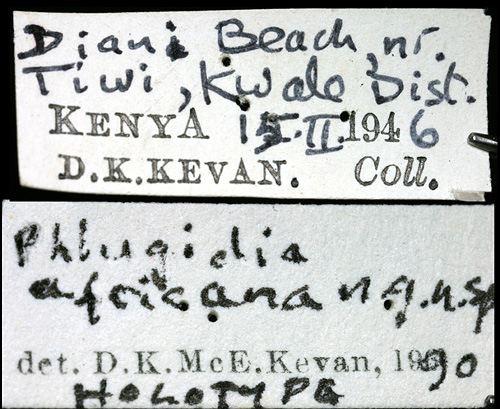 Diani Beach, nr.
Tiwi, Kwale Dist.
KENYA 15.II.1946
D.K.KEVAN. Coll.
Phlugidia
africana n.g.n.sp
det. D.K.McE.Kevan, 1990
HOLOTYPE